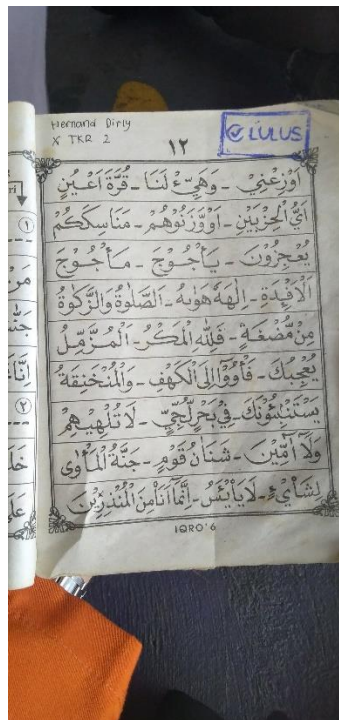 Hernand Dirly
X TKR 2
LULUS
١٢
أَوْزِعْنِيْ - وَهَيِّءْ لَنَا - قُرَّةَ اَعْيُنٍ
اَيُّ الْحِزْبَيْنِ - اَوْوَّزَنُوْهُمْ - مَنَاسِكَكُمْ
يُعْجِزُوْنَ - يَأْجُوْجَ - مَأْجُوْجَ
الْاَفْئِدَةِ - اِلٰهَهٗ هَوٰىهُ - الصَّلٰوةُ وَالزَّكٰوةُ
مِنْ مُّضْغَةٍ - فَلِلّٰهِ الْمَكْرُ - الْمُزَّمِّلُ
يُعْجِبُكَ - فَأْوُوْٓا اِلَى الْكَهْفِ - وَالْمُنْخَنِقَةُ
يَسْتَنْبِئُوْنَكَ - فِيْ بَحْرٍ لُّجِّيٍّ - لَا تُلْهِيْهِمْ
وَلَآ اٰمِّيْنَ - شَنَاٰنُ قَوْمٍ - جَنَّةُ الْمَأْوٰى
لِشَايْءٍ - لَا يَا۟يْـَٔسُ - اِنَّمَآ اَنَا۠ مِنَ الْمُنْذِرِيْنَ
IQRO : 6